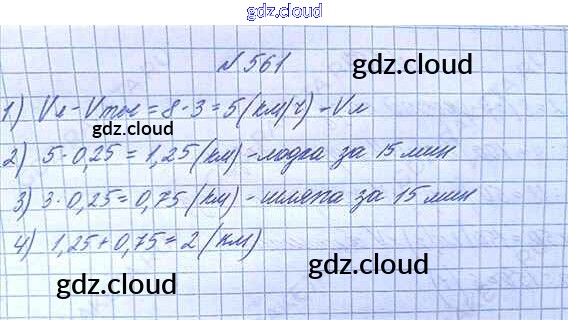 gdz.cloud
№ 561
gdz.cloud
1) Vл - Vтеч = 8 - 3 = 5 (км/ч) - Vл
gdz.cloud
2) 5 · 0,25 = 1,25 (км) - лодка за 15 мин
3) 3 · 0,25 = 0,75 (км) - шляпа за 15 мин
4) 1,25 + 0,75 = 2 (км)
gdz.cloud
gdz.cloud